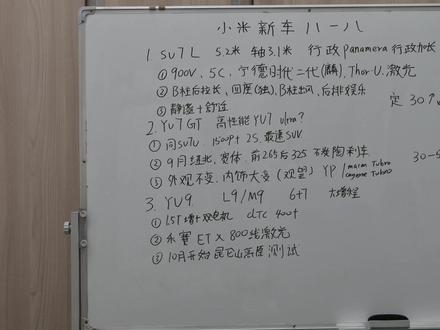 小米新车 八一八
1. SU7 L 5.2米 轴3.1米 行政 panamera 行政加长
① 900V、5C、宁德时代二代(麟)、Thor-U.激光
② B柱后拉长,四座(独)、B柱出风、后排娱乐
定 30个
③ 静谧+舒适
2. YU7 GT 高性能 YU7 Ultra?
① 同SU7U 1500P+ 2S. 最速SUV
② 9月纽北,宽体,前265后325 不
30-
③ 外观不变,内饰大变(观望) YP / macan Turbo
cayenne Turbo
3. YU9 L9/M9 6+7 大增程
① 1.5T增+双电机 CLTC 400+
② 禾赛 ETX 800线激光
③ 10月开始昆仑山 测试